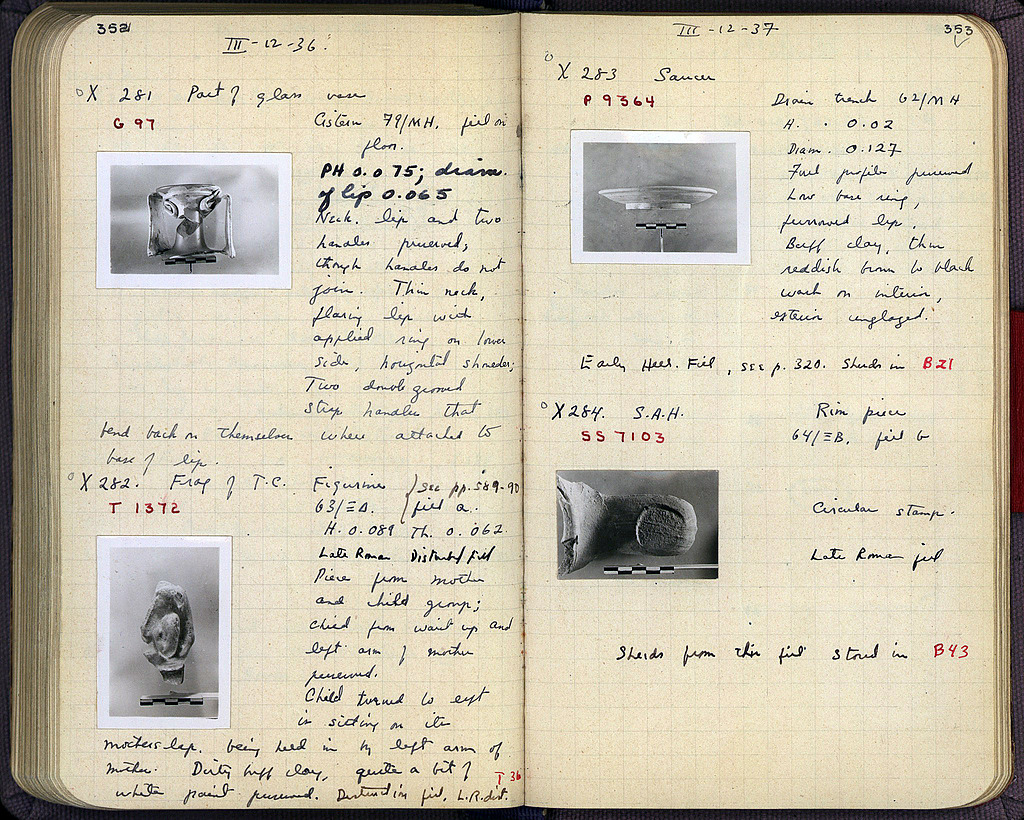 352
III-12-36.
X 281 Part of glass vase
G 97
Cistern 79/MH. fill on
floor.
PH 0.075; diam.
of lip 0.065
Neck, lip and two
handles preserved;
though handles do not
join. Thin neck,
flaring lip with
applied ring on lower
side, horizontal shoulder;
Two double grooved
strap handles that
bend back on themselves where attached to
base of lip.
X 282. Frag of T.C. Figurine
T 1372
(see pp. 589-90
63/ΞΔ. fill a.
H. 0.089 Th. 0.062
Late Roman Disturbed fill
Piece from mother
and child group;
child from waist up and
left arm of mother
preserved.
Child turned to left
is sitting on its
mothers lap, being held in by left arm of
mother. Dirty buff clay, quite a bit of
white paint preserved. L.R. dist.
T 36
353
III-12-37
X 283 Saucer
P 9364
Drain trench 62/MH
H. 0.02
Diam. 0.127
Full profile preserved
Low base ring,
furrowed lip.
Buff clay, thin
reddish brown to black
wash on interior,
exterior unglazed.
Early Hell. Fill, see p. 320. Sherds in B21
X 284. S.A.H.
SS 7103
Rim piece
64/ΞB, fill b
Circular stamp.
Late Roman fill
Sherds from this fill stored in B43